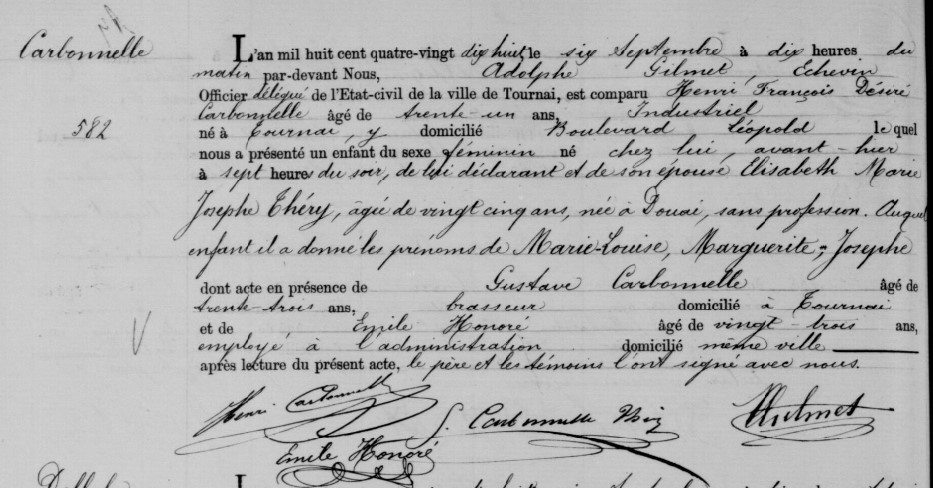 Carbonnelle
582
L'an mil huit cent quatre-vingt dix huit, le six Septembre à dix heures du
matin par-devant Nous, Adolphe Gilmet, Echevin
Officier délégué de l'Etat-civil de la ville de Tournai, est comparu Henri François Désiré
Carbonnelle âgé de trente-un ans, Industriel
né à Tournai, y domicilié Boulevard Léopold lequel
nous a présenté un enfant du sexe féminin né chez lui, avant-hier
à sept heures du soir, de lui déclarant et de son épouse Elisabeth Marie
Josephe Théry, âgée de vingt cinq ans, née à Douai, sans profession. Auquel
enfant il a donné les prénoms de Marie-Louise, Marguerite, Josephe
dont acte en présence de Gustave Carbonnelle âgé de
trente-trois ans, brasseur domicilié à Tournai
et de Emile Honoré âgé de vingt-trois ans,
employé à l'administration domicilié même ville
après lecture du présent acte, le père et les témoins l'ont signé avec nous.
Henri Carbonnelle
G. Carbonnelle
Emile Honoré